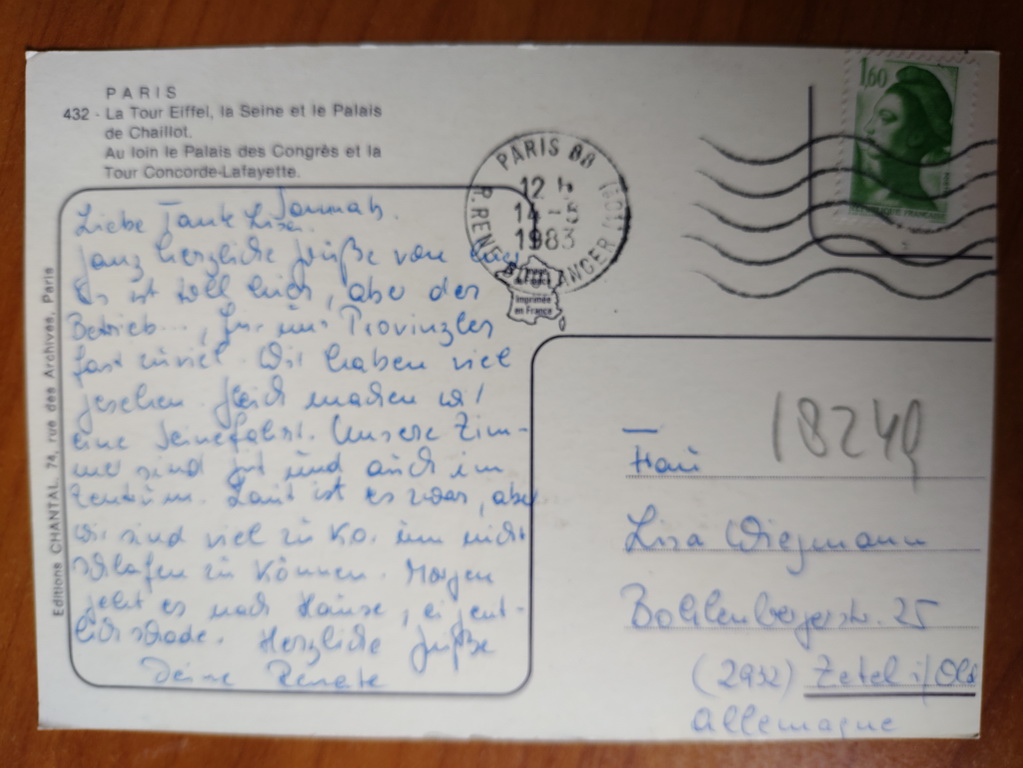 PARIS
432 - La Tour Eiffel, la Seine et le Palais
de Chaillot.
Au loin le Palais des Congrès et la
Tour Concorde-Lafayette.
Editions CHANTAL, 74, rue des Archives, Paris
PARIS
R. RENE BOULANGER (10E)
12 H
14 - 5
1983
Imprimée
en France
1,60
Liebe Tante Lisa.
Ganz herzliche Grüße von
Es ist toll hier, aber der
Betrieb..., für uns Provinzler
fast zuviel. Wir haben viel
gesehen. Gleich machen wir
eine Seinefahrt. Unsere Zim-
mer sind gut und auch im
Zentrum. Laut ist es zwar, aber
wir sind viel zu K.o. um nicht
schlafen zu können. Morgen
geht es nach Hause, eigent-
lich schade. Herzliche Grüße
Deine Renate
18249
Frau
Lisa Wiegmann
Bohlenbergerstr. 25
(2932) Zetel i/Old
Allemagne